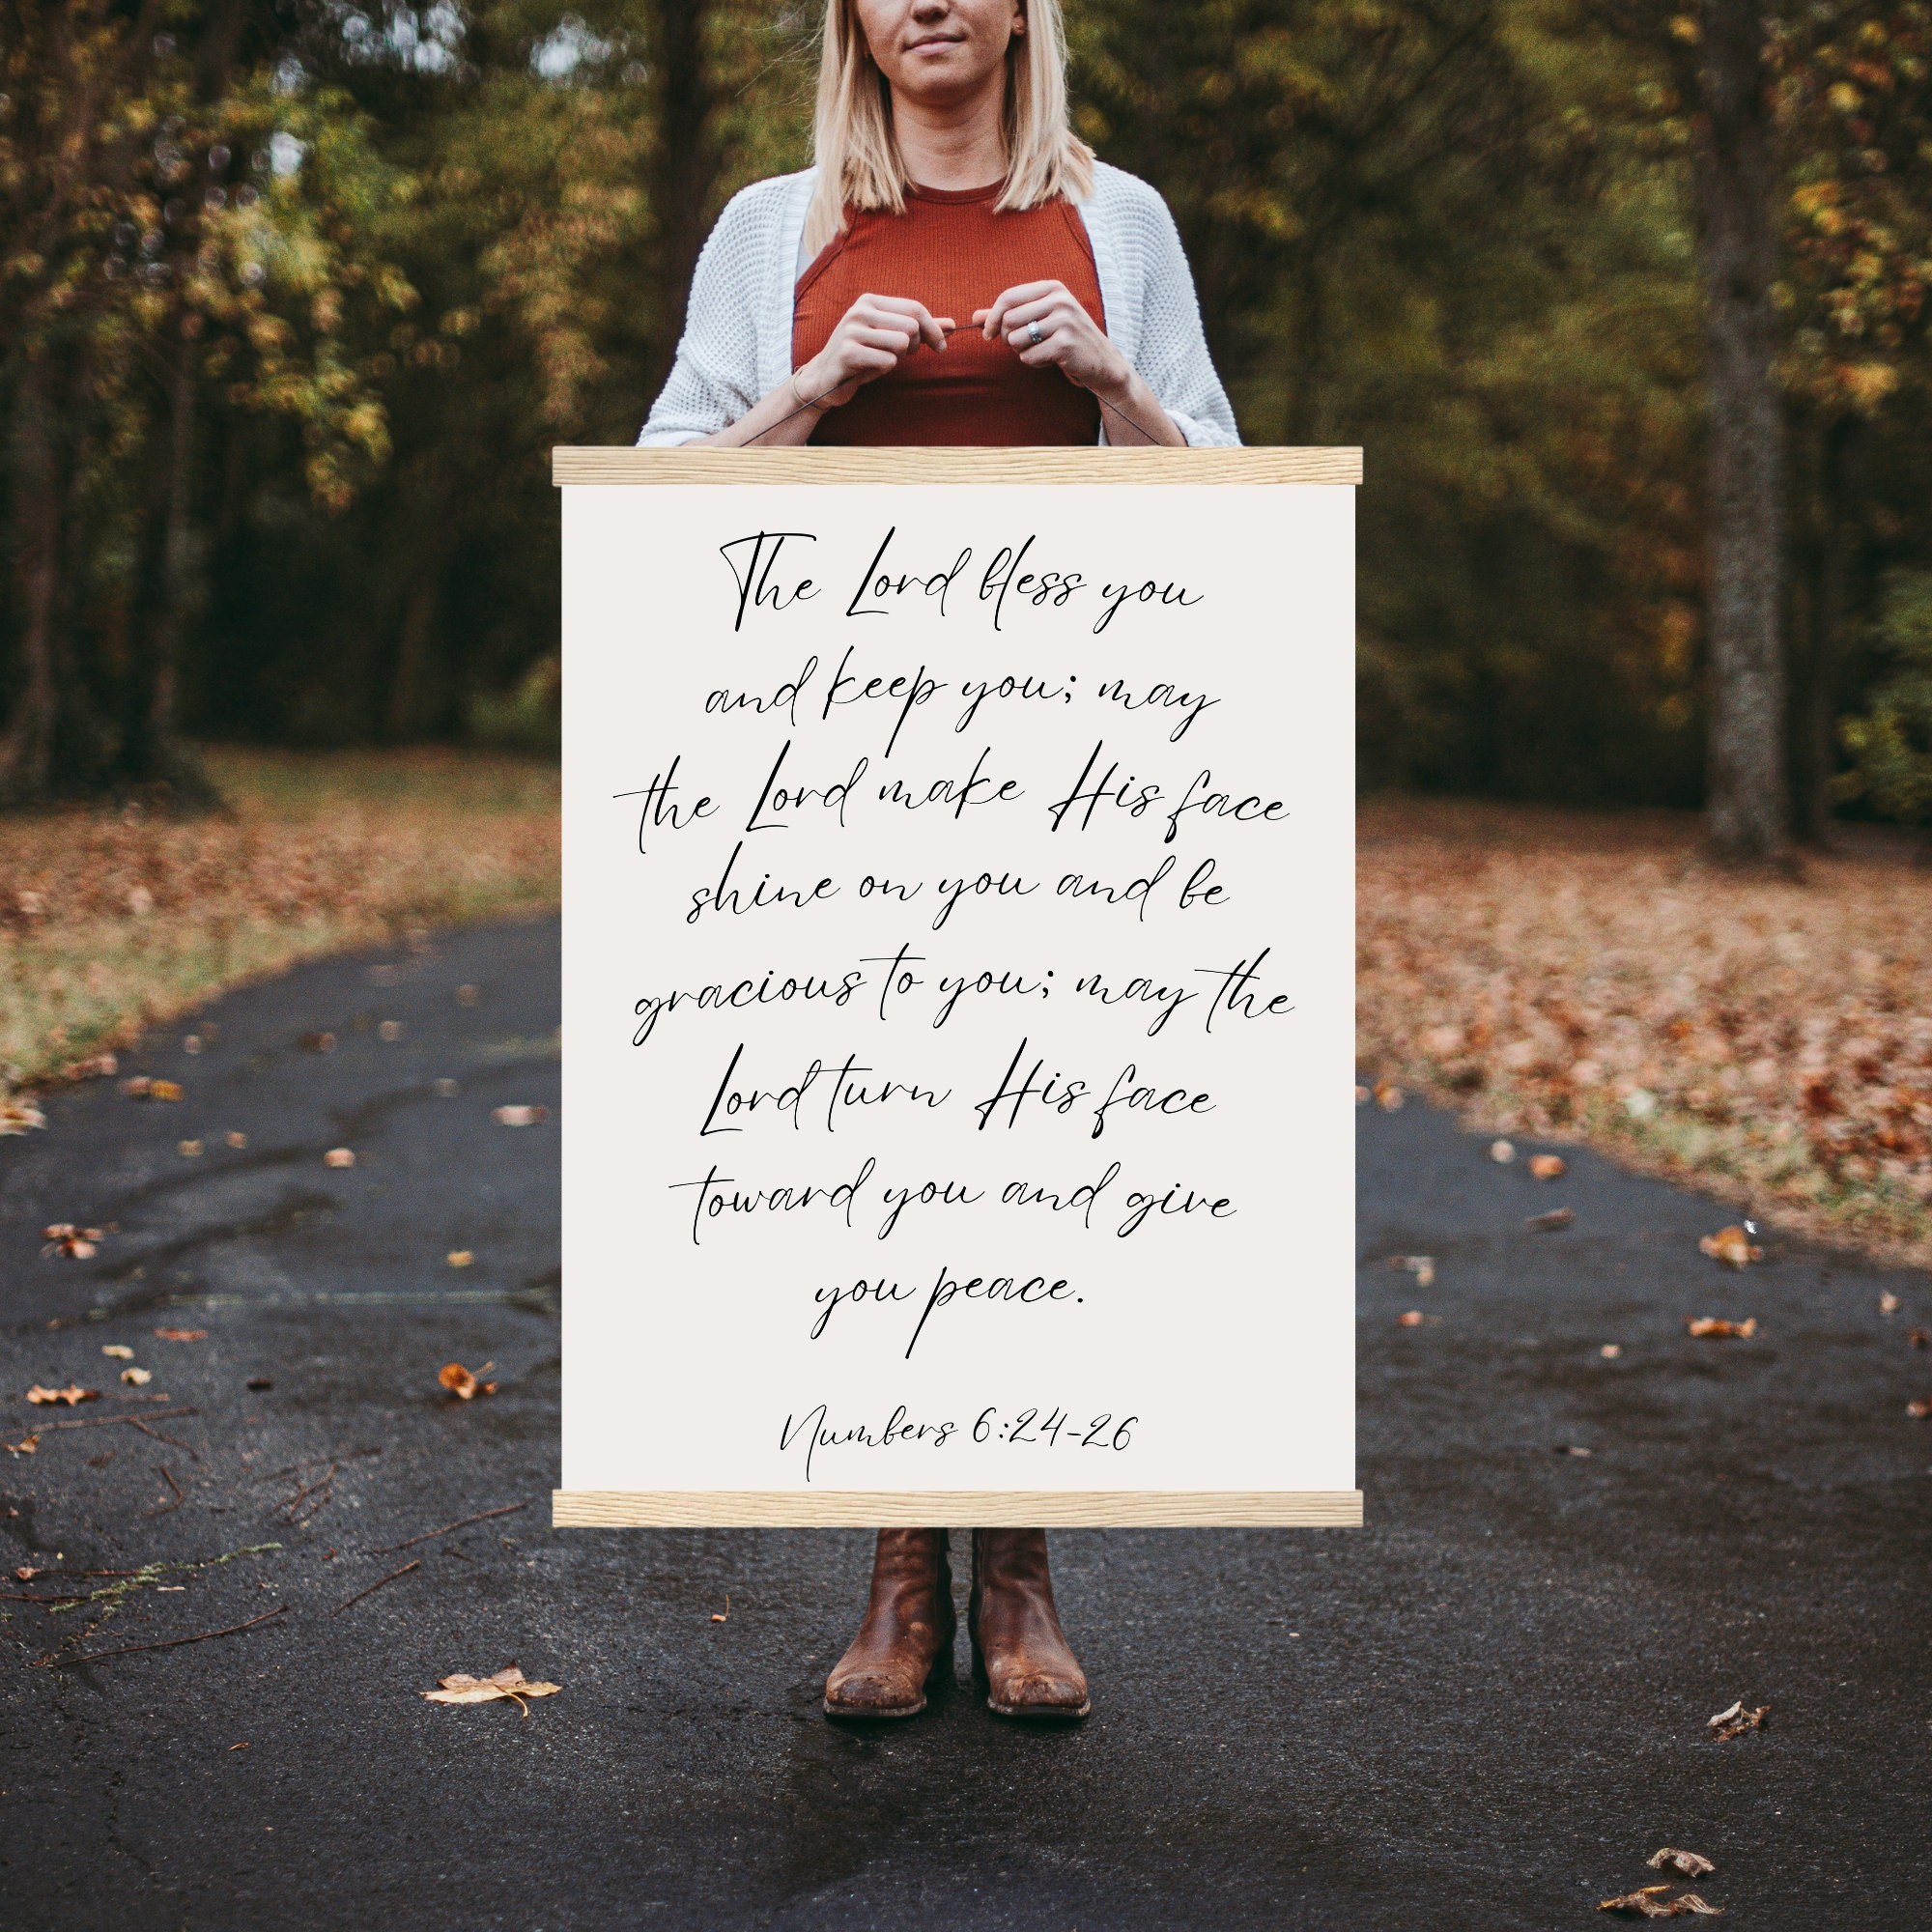 The Lord bless you
and keep you; may
the Lord make His face
shine on you and be
gracious to you; may the
Lord turn His face
toward you and give
you peace.
Numbers 6:24-26